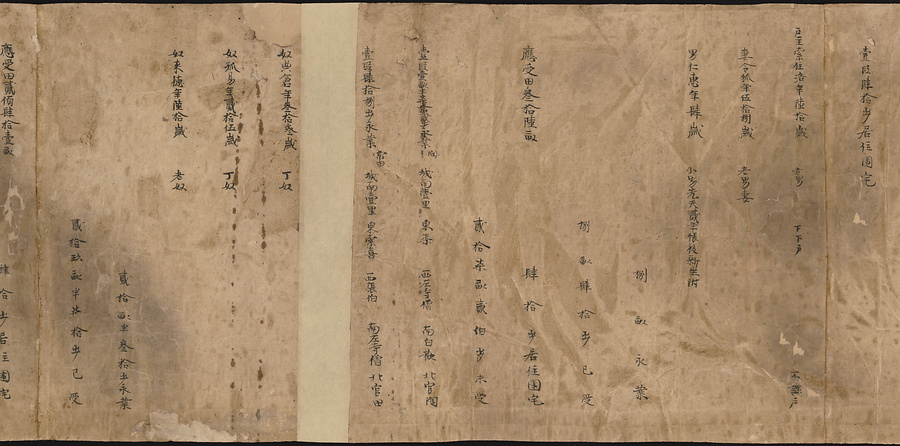 壹段肆拾步居住園宅
戶主索住洛年陸拾歲 老男 下下戶 不課戶
妻令狐年伍拾捌歲 老男妻
男仁惠年肆歲 小男先天貳年帳後新生附
捌畝永業
捌畝肆拾步已受
應受田叁拾陸畝 肆拾步居住園宅
貳拾柒畝貳伯步未受
城南壹里 東渠 西左寺僧 南白歡 北官
壹段肆拾捌步永業 城南壹里 東索善 西張伯 南左寺僧 北官田
奴典倉年叁拾叁歲 丁奴
奴狐易年貳拾伍歲 丁奴
奴来德年陸拾歲 老奴
貳拾畝半叁拾步永業
貳拾玖畝半柒拾步已受
應受田貳頃肆拾壹畝
拾步居住園宅